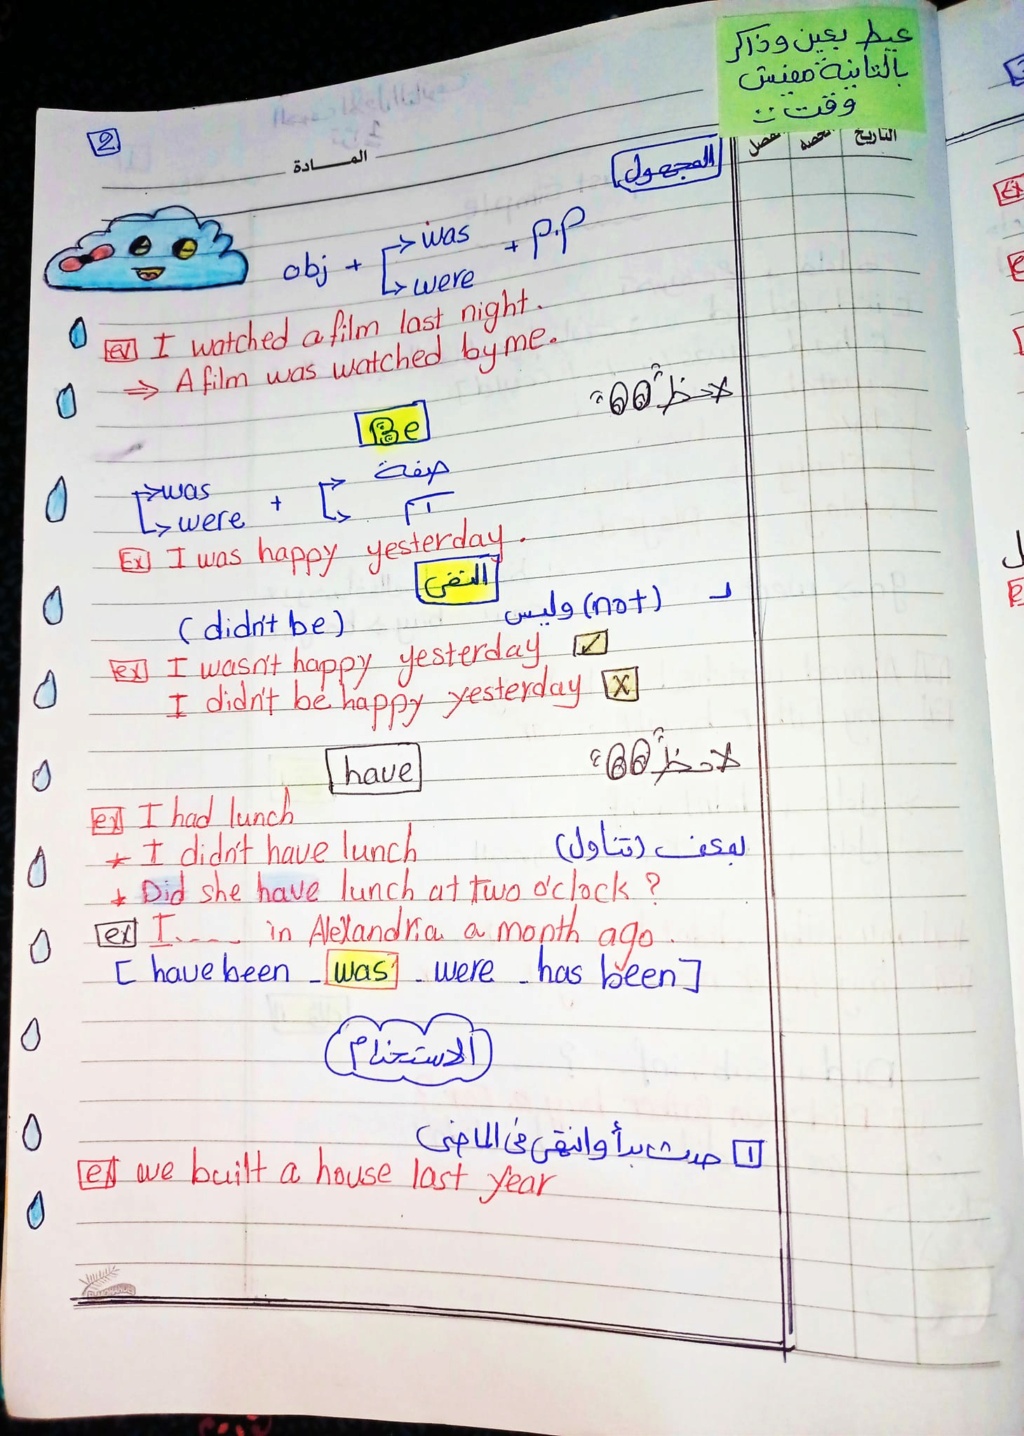 عيط بعين وذاكر
بالتانية مفيش
وقت
2
المـــادة
التاريخ
الحصة
الفصل
المجهول
obj + was were + p.p
ex I watched a film last night.
⇒ A film was watched by me.
لاحظ
Be
was were + صفة اسم
Ex I was happy yesterday.
النفى
(not) وليس (didn't be)
ex I wasn't happy yesterday ✓
I didn't be happy yesterday X
لاحظ
have
ex I had lunch
بمعنى (تناول)
* I didn't have lunch
* Did she have lunch at two o'clock ?
ex I...... in Alexandria a month ago.
[ have been - was - were - has been ]
الاستخدام
1 حدث بدأ وانتهى فى الماضى
ex we built a house last year